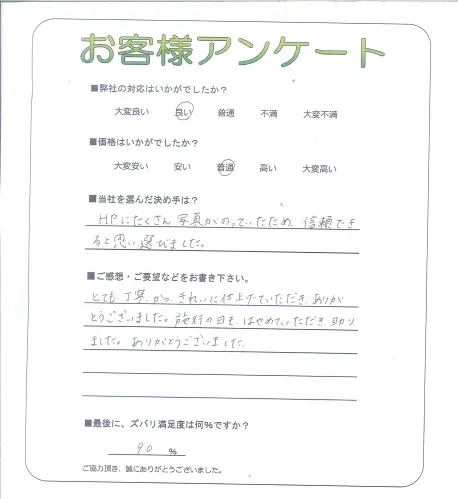 お客様アンケート
■弊社の対応はいかがでしたか？
大変良い 良い 普通 不満 大変不満
■価格はいかがでしたか？
大変安い 安い 普通 高い 大変高い
■当社を選んだ決め手は？
HPにたくさん写真がのっていたため、信頼でき
ると思い選びました。
■ご感想・ご要望などをお書き下さい。
とても丁寧かつ、きれいに仕上げていただき、ありが
とうございました。施行の日を、はやめていただき、助り
ました。ありがとうございました。
■最後に、ズバリ満足度は何%ですか？
90 %
ご協力頂き、誠にありがとうございました。